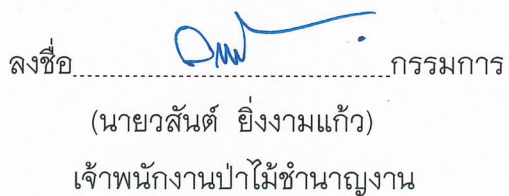 ลงชื่อ........................................กรรมการ
(นายวสันต์ ยิ่งงามแก้ว)
เจ้าพนักงานป่าไม้ชำนาญงาน